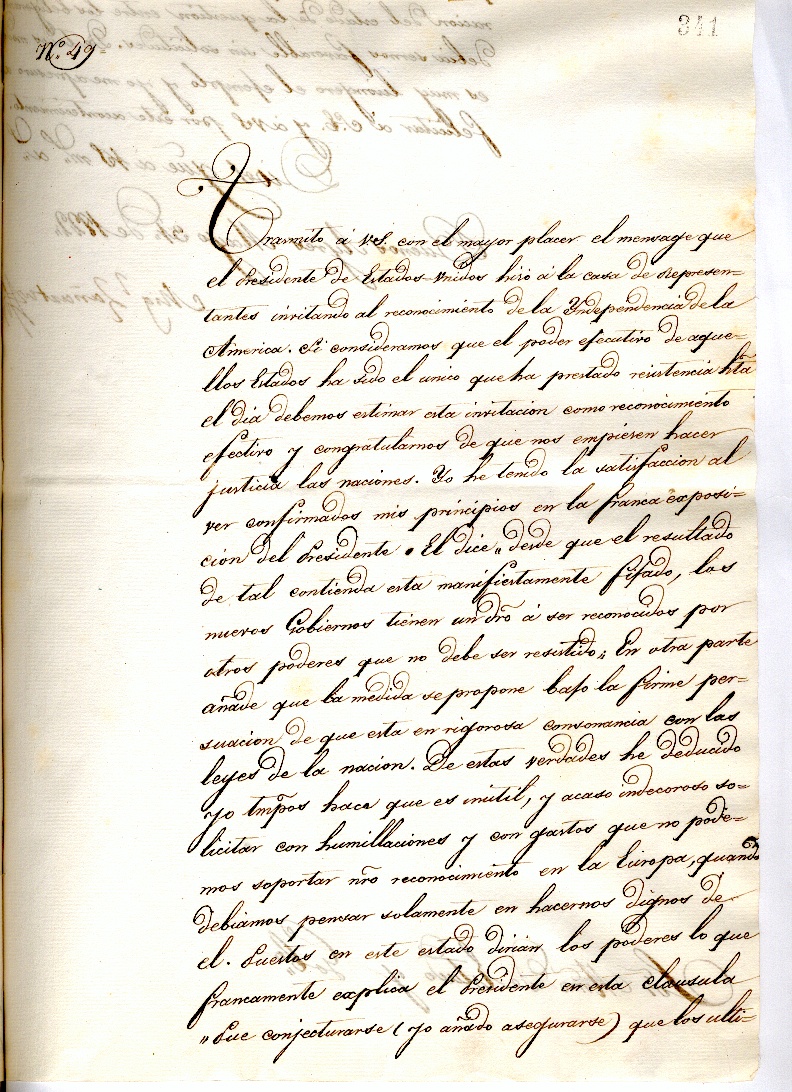 341
N.º 49=
Tramito á VS. con el mayor placer el mensage que
el Presidente de Estados-Vnidos hizo á la casa de Represen=
tantes invitando al reconocimiento de la Yndependencia de la
America. Si consideramos que el poder efecutivo de aque=
llos Estados ha sido el unico que ha prestado resistencia hta
el dia debemos estimar esta invitacion como reconocimiento
efectivo y congratularnos de que nos empiesen hacer
justicia las naciones. Yo he tenido la satisfaccion al
ver confirmados mis principios en la franca exposi=
cion del Presidente. El dice „ desde que el resultado
de tal contienda esta manifiestamente fijado, los
nuevos Gobiernos tienen un dro á ser reconocidos por
otros poderes que no debe ser resistido„ En otra parte
añade que la medida se propone bajo la firme per=
suacion de que esta en rigorosa consonancia con las
leyes de la nacion. De estas verdades he deducido
yo tmpos hace que es inutil, y acaso indecoroso so=
licitar con humillaciones y con gastos que no pode=
mos soportar nro reconocimiento en la Europa, quando
debiamos pensar solamente en hacernos dignos de
el. Puestos en este estado dirian los poderes lo que
francamente explica el Presidente en esta clausula
„ Pue conjecturarse (yo añado asegurarse) que los ulti=